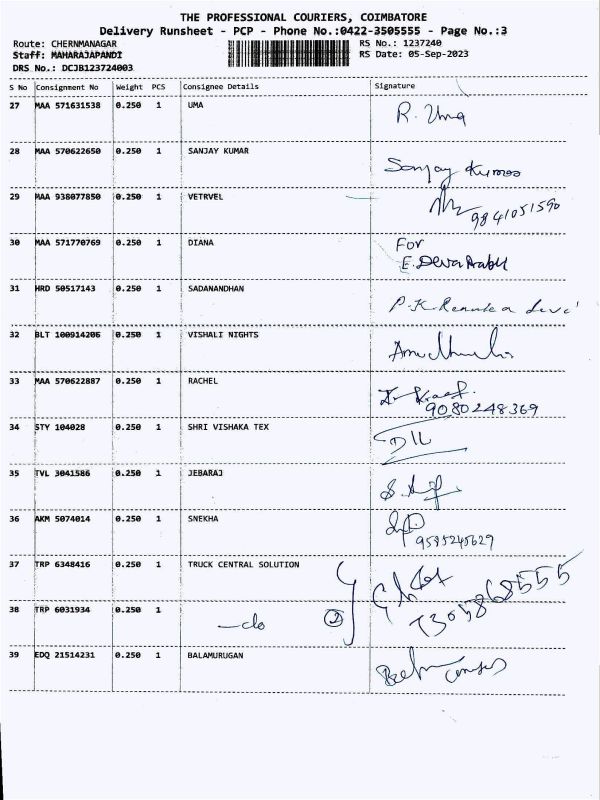 THE PROFESSIONAL COURIERS, COIMBATORE
Delivery Runsheet - PCP - Phone No.:0422-3505555 - Page No.:3
Route: CHERNMANAGAR RS No.: 1237240
Staff: MAHARAJAPANDI RS Date: 05-Sep-2023
DRS No.: DCJB123724003
S No Consignment No Weight PCS Consignee Details Signature
27 MAA 571631538 0.250 1 UMA R. Uma
28 MAA 570622650 0.250 1 SANJAY KUMAR Sanjay Kumar
29 MAA 938077850 0.250 1 VETRVEL 9841051590
30 MAA 571770769 0.250 1 DIANA For
E. Deva
31 HRD 50517143 0.250 1 SADANANDHAN P.K. Renuka Devi
32 BLT 100914206 0.250 1 VISHALI NIGHTS
33 MAA 570622887 0.250 1 RACHEL
9080248369
34 STY 104028 0.250 1 SHRI VISHAKA TEX
35 TVL 3041586 0.250 1 JEBARAJ
36 AKM 5074014 0.250 1 SNEKHA
9595245629
37 TRP 6348416 0.250 1 TRUCK CENTRAL SOLUTION
38 TRP 6031934 0.250 1 —do 2 7305868555
39 EDQ 21514231 0.250 1 BALAMURUGAN